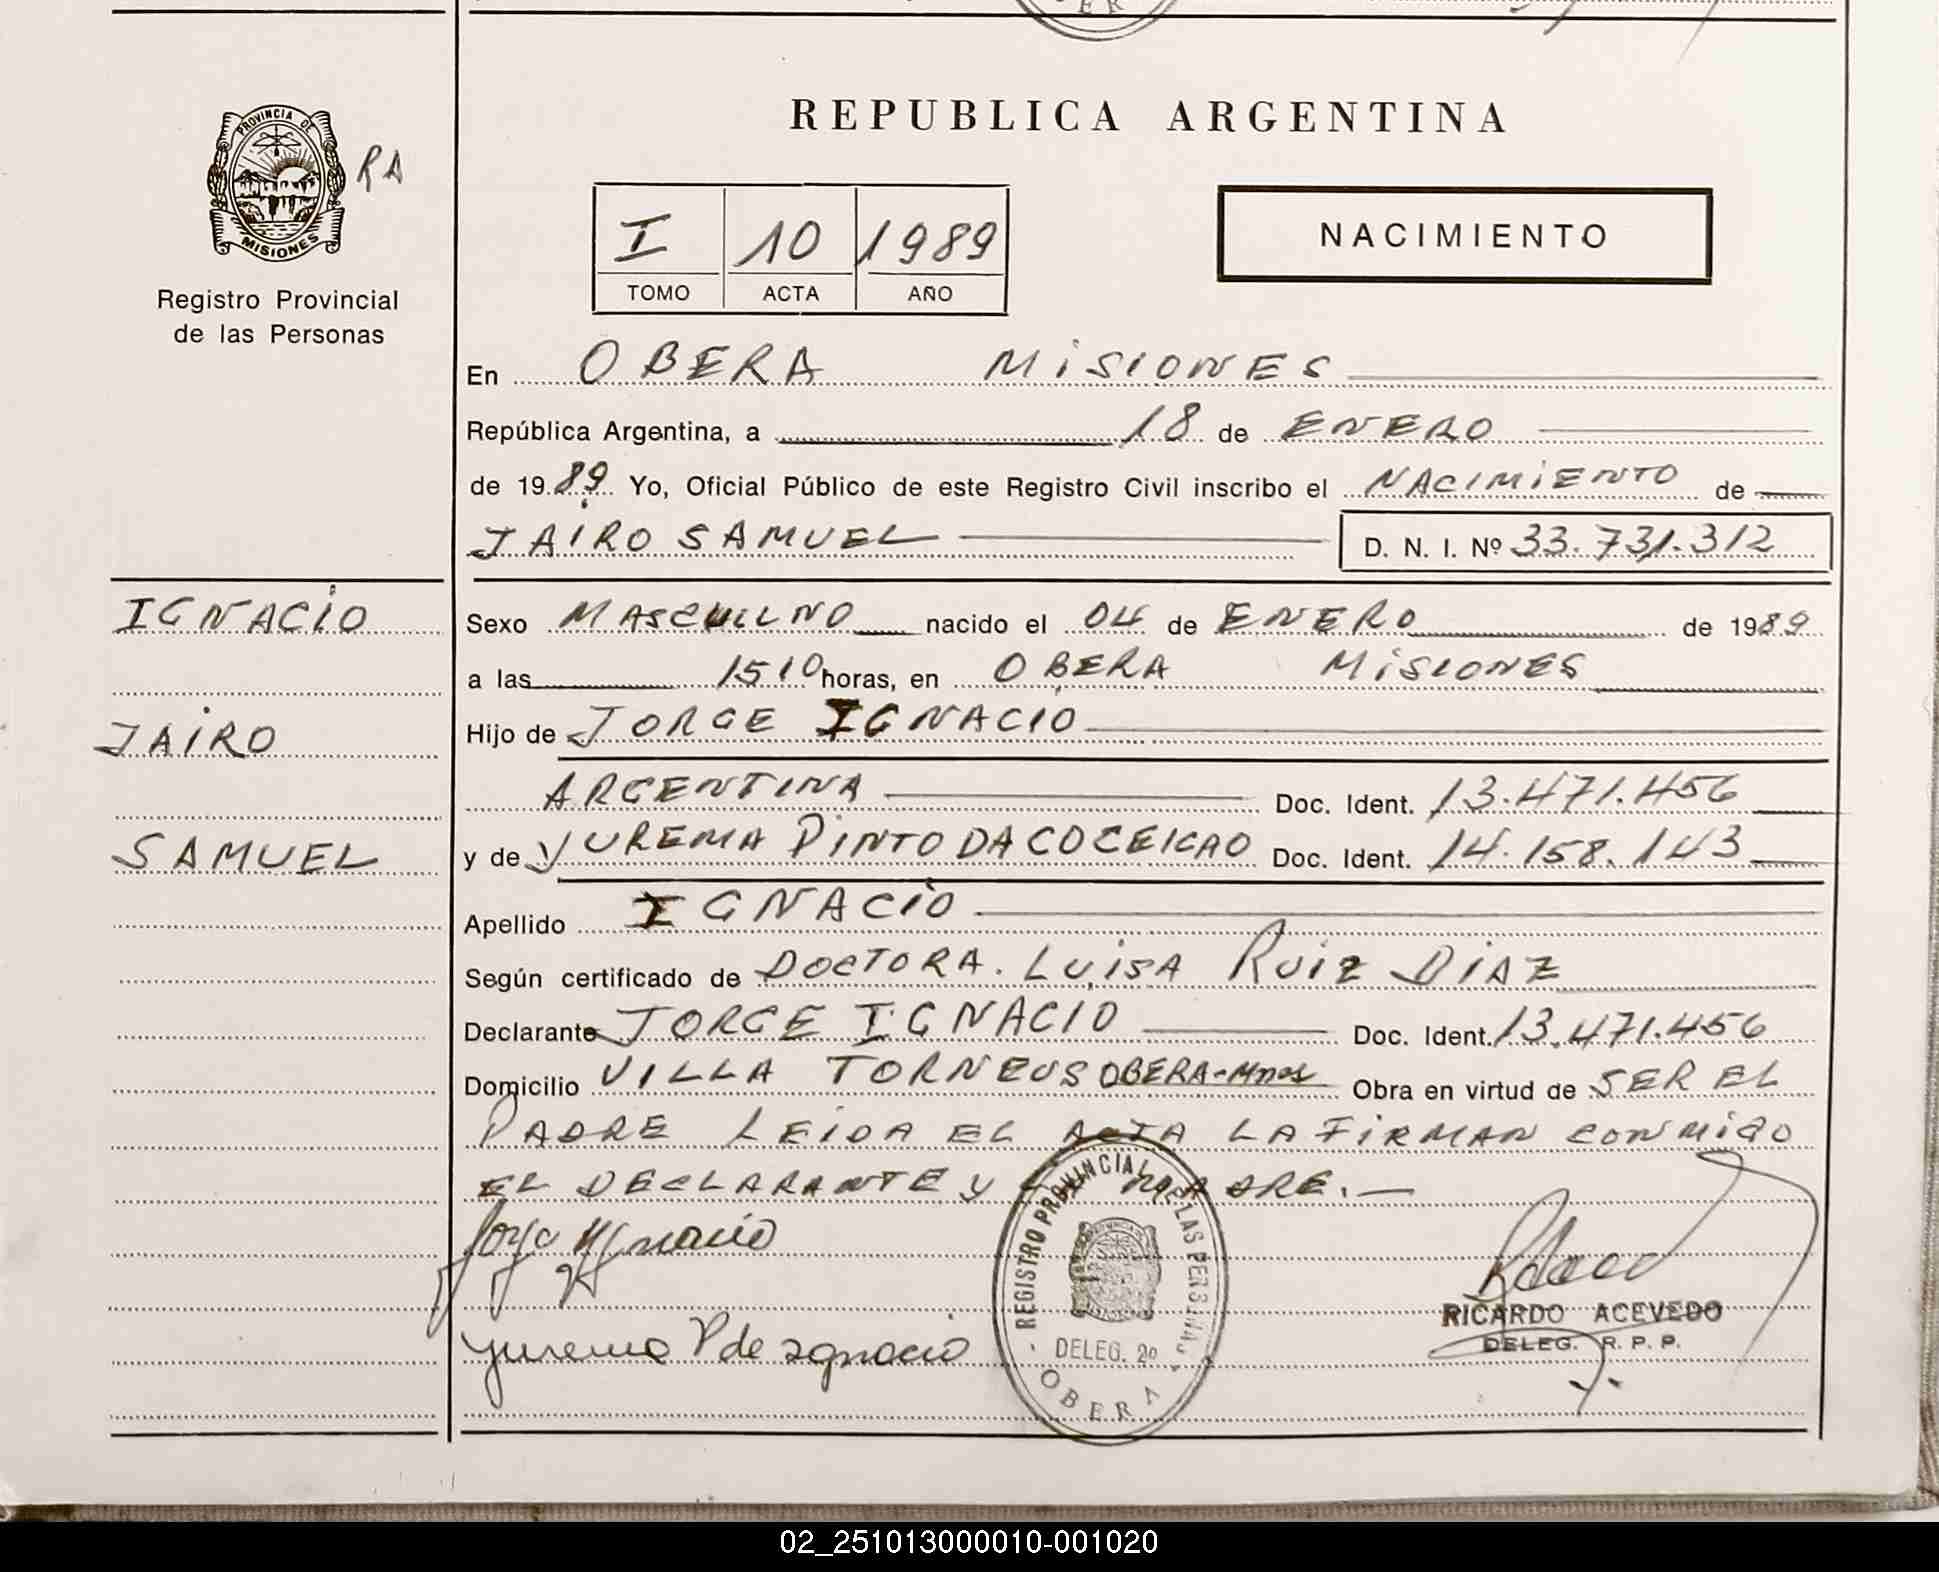 REPUBLICA ARGENTINA
PROVINCIA DE
MISIONES
RA
Registro Provincial
de las Personas
I 10 1989
TOMO ACTA AÑO
NACIMIENTO
En OBERA MiSIONES
República Argentina, a 18 de ENERO
de 1989 Yo, Oficial Público de este Registro Civil inscribo el NACIMIENTO de
JAIRO SAMUEL D. N. I. Nº 33.731.312
IGNACIO
JAIRO
SAMUEL
Sexo MASCULINO nacido el 04 de ENERO de 1989
a las 1510 horas, en OBERA MiSIONES
Hijo de JORGE IGNACIO
ARGENTINA Doc. Ident. 13.471.456
y de YUREMA PINTO DA COCEICAO Doc. Ident. 14.158.143
Apellido IGNACIO
Según certificado de DOCTORA. LUISA RUIZ DIAZ
Declarante JORGE IGNACIO Doc. Ident. 13.471.456
Domicilio VILLA TORNEUS OBERA-Mnes Obra en virtud de SER EL
PADRE LEIDA EL ACTA LA FIRMAN CONMIGO
EL DECLARANTE Y LA MADRE.—
Jorge Ygnacio
Yurema P de Ignacio
REGISTRO PROVINCIAL DE LAS PERSONAS
DELEG. 2º
OBERA
RICARDO ACEVEDO
DELEG. R. P. P.
02_251013000010-001020